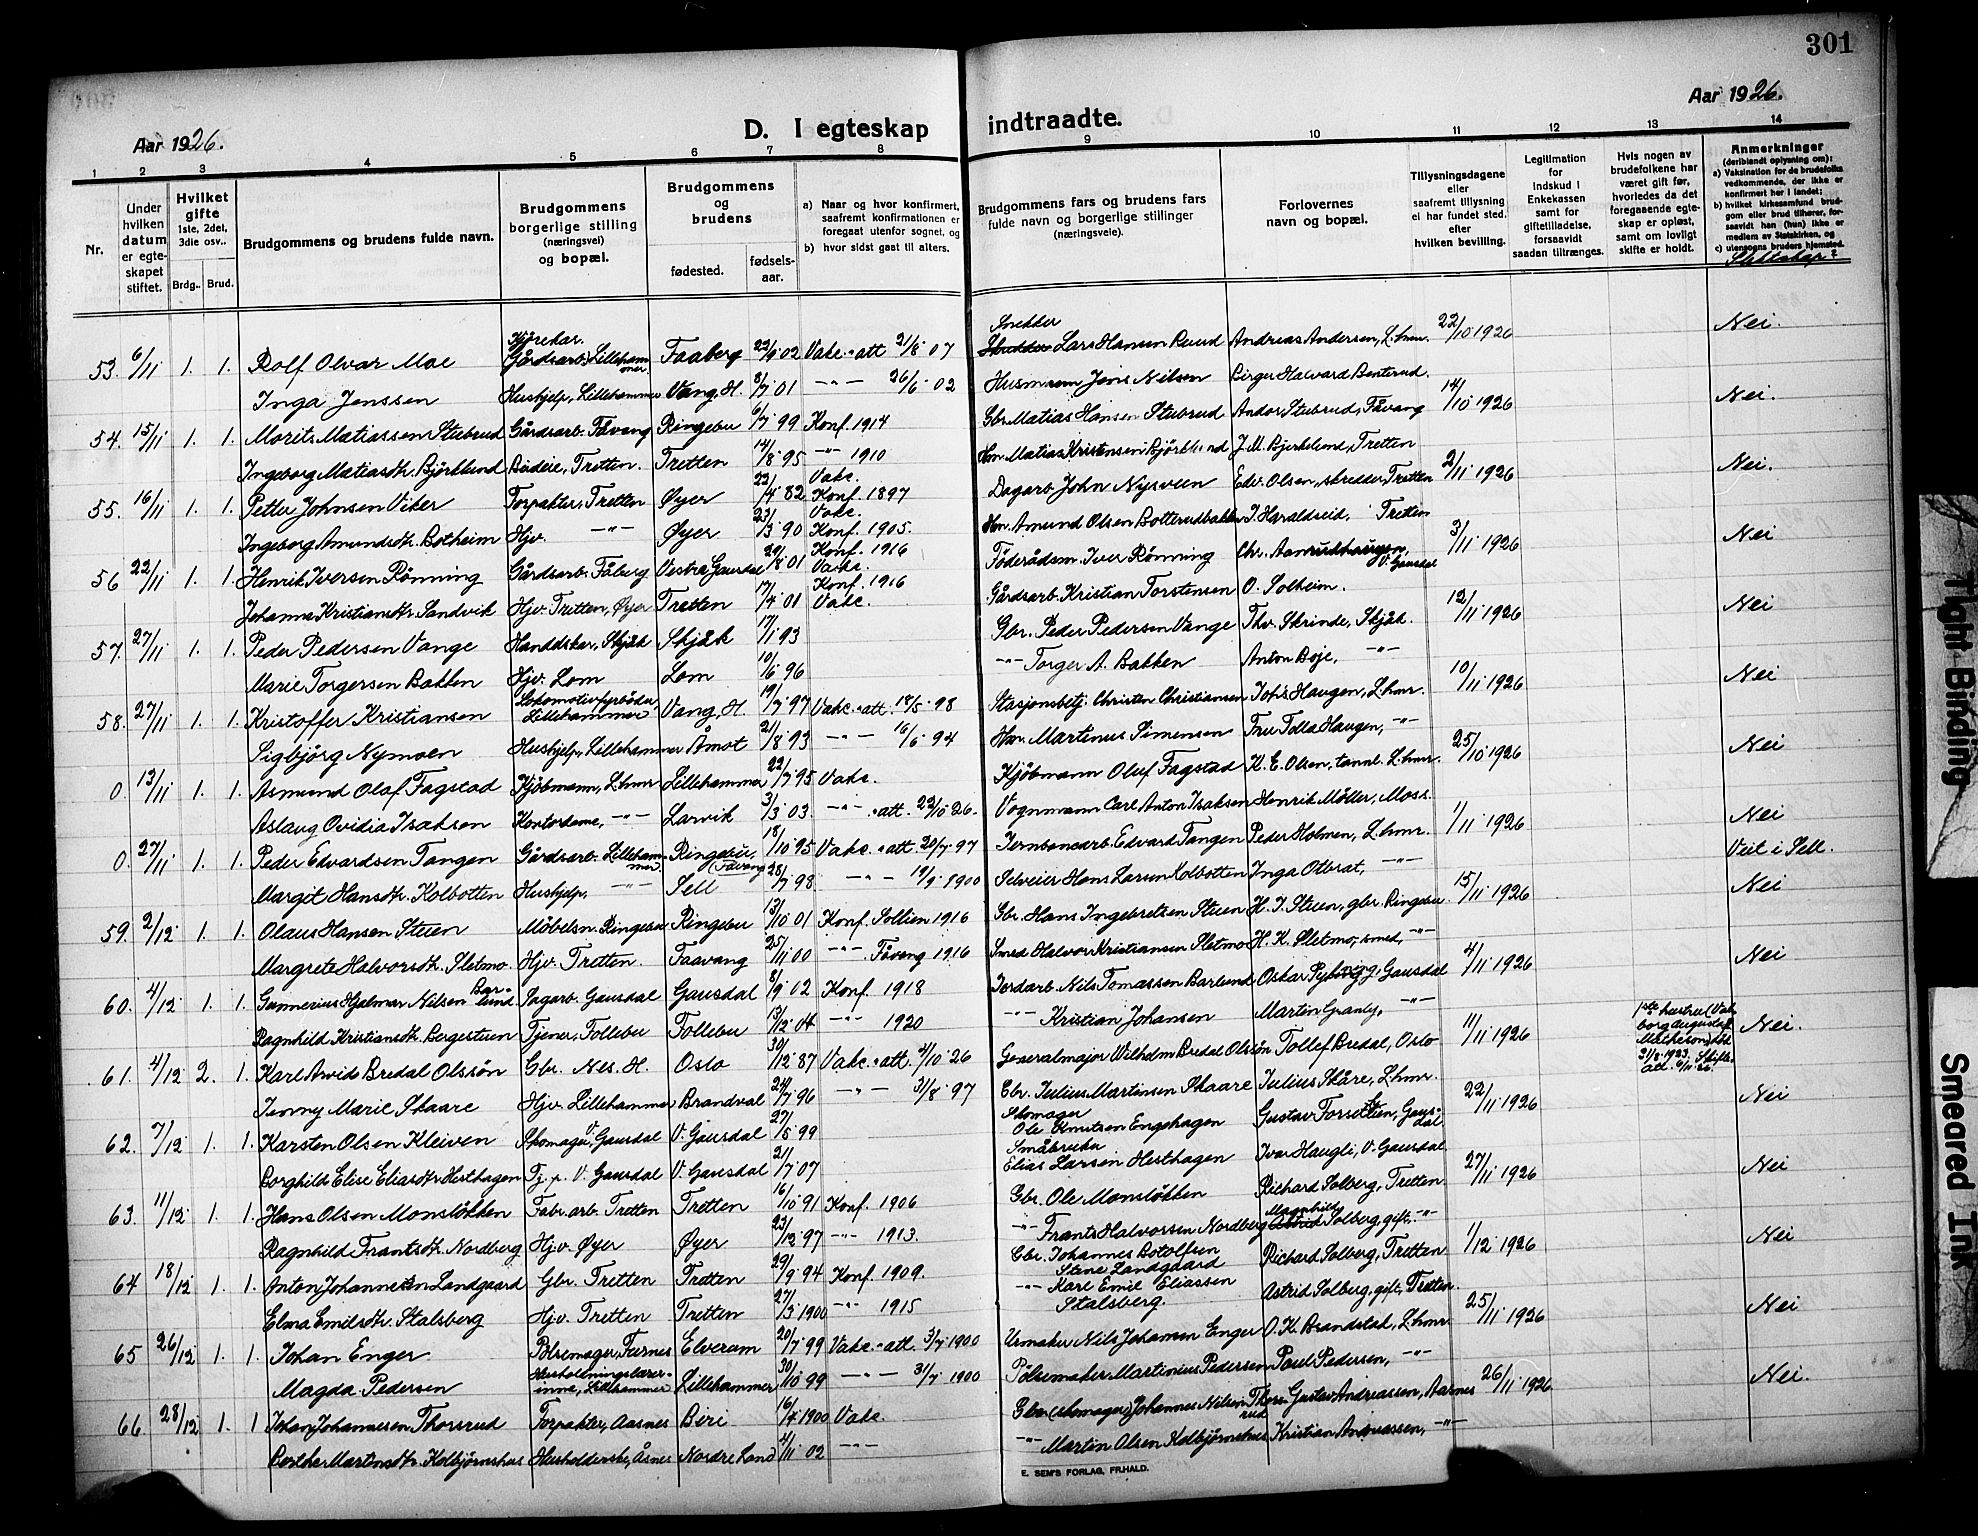 301
Aar 1926.
Aar 1926.
D. I egteskap indtraadte.
1 2 3 4 5 6 7 8 9 10 11 12 13 14
Nr.
Under hvilken datum er egteskapet stiftet.
Hvilket gifte 1ste, 2det, 3die osv..
Brdg.. Brud.
Brudgommens og brudens fulde navn.
Brudgommens borgerlige stilling (næringsvei) og bopæl.
Brudgommens og brudens
fødested. fødsels-aar.
a) Naar og hvor konfirmert, saafremt konfirmationen er foregaat utenfor sognet, og
b) hvor sidst gaat til alters.
Brudgommens fars og brudens fars fulde navn og borgerlige stillinger (næringsveie).
Forlovernes navn og bopæl.
Tillysningsdagene eller saafremt tillysning ei har fundet sted, efter hvilken bevilling.
Legitimation for Indskud i Enkekassen samt for giftetilladelse, forsaavidt saadan tiltrænges.
Hvis nogen av brudefolkene har været gift før, hvorledes da det foregaaende egteskap er opløst, samt om lovligt skifte er holdt.
Anmerkninger (deriblandt oplysning om):
a) Vaksination for de brudefolks vedkommende, der ikke er konfirmert her i landet;
b) hvilket kirkesamfund brudgom eller brud tilhører, forsaavidt han (hun) ikke er medlem av Statskirken, og
c) utensogns bruders hjemsted.
Slektskap?
53. 6/11 1. 1. Rolf Olvar Moe Kjørekar. Gårdsarb. Lillehammer Faaberg 22/9 02 Vakc.-att 2/8 07 Snekker Lars Hansen Ruud Andreas Andersen, L.hmr. 22/10 1926 Nei.
Inga Jenssen Hushjelp, Lillehammer Vang, H. 3/7 01 -"- 26/6 02 Husmann Jens Nilsen Birger Halvard Benterud.
54. 15/11 1. 1. Morits Matiassen Stubrud Gårdsarb. Fåvang Ringebu 6/7 99 Konf. 1914 Gbr. Matias Hansen Stubrud Andor Stubrud, Fåvang 14/10 1926 Nei.
Ingeborg Matiasdtr. Bjørklund Budeie, Tretten. Tretten 14/8 95 -"- 1910 Hm. Matias Kristensen Bjørklund J. M. Bjørklund, Tretten
55. 16/11 1. 1. Petter Johnsen Viker Forpakter, Tretten Øyer 22/4 82 Vakc. Konf. 1897 Dagarb. John Nysveen Edv. Olsen, skredder, Tretten 2/11 1926 Nei.
Ingeborg Amundsdtr. Botheim Hjv. -"- Øyer 23/3 90 Vakc. Konf. 1905. Hm. Amund Olsen Botterudbakken I. Haraldseid, Tretten
56 22/11 1. 1. Henrik Iversen Rønning Gårdsarb. Fåberg Vestre Gausdal 29/8 01 Konf. 1916 Vakc. Føderådsm. Iver Rønning Chr. Aanrudhaugen, V. Gausdal 3/11 1926 Nei
Johanna Kristiansdtr. Sandvik Hjv. Tretten, Øyer Tretten 17/4 01 Konf. 1916 Vakc. Gårdsarb. Kristian Torstensen O. Solheim.
57. 27/11 1. 1. Peder Pedersen Vange Skjåk Skjåk 17/1 93 Gbr. Peder Pedersen Vange Thv. Skrinde, Skjåk. 12/11 1926 Nei
Marie Torgersen Bakken Hjv. Lom Lom 10/5 96 -"- Torger A. Bakken Anton Boje, -"-
58. 27/11 1. 1. Kristoffer Kristiansen Lokomotivfyrbøder Lillehammer Vang, H. 19/7 97 Vakc.-att. 18/5 98 Stasjonsbetj. Christen Christiansen Johs. Haugen, L.hmr. 10/11 1926 Nei
Sigbjørg Nymoen Hushjelp, Lillehammer Åmot 21/8 93 -"- 16/6 94 Hm. Martinus Simensen Fru Tolla Haugen, -"-
0. 13/11 1. 1. Asmund Olaf Fagstad Kjøbmann, L.hmr Lillehammer 22/7 95 Vakc. Kjøbmann Oluf Fagstad K. E. Olsen, tannl. L.hmr. 25/10 1926 Nei
Aslaug Ovidia Isaksen Kontordame, -"- Larvik 3/3 03. -"- att. 22/10 26. Vognmann Carl Anton Isaksen Henrik Möller, Moss.
0. 27/11 1. 1. Peder Edvardsen Tangen Gårdsarb. Lillehammer. Ringebu, (Favang 18/10 95 Vakc.-att. 20/7 97 Jernbanearb. Edvard Tangen Peder Holmen, L.hmr. 1/11 1926 Nei
Margit Hansdtr. Kolbotten Hushjelp, -"- Sell 28/7 98 -"- 19/9 1900 Selveier Hans Larsen Kolbotten Inga Olbrat, -"- Veit i Sell.
59. 2/12 1. 1. Olaus Hansen Stuen Møbelsn. Ringebu Ringebu 13/10 01 Konf. Sollien 1916 Gbr. Hans Ingebretsen Stuen H. I. Stuen, gbr. Ringebu 15/11 1926 Nei
Margrete Halvorsdtr. Sletmo. Hjv. Tretten. Faavang 25/11 00 -"- Fåvang 1916 Smed Halvor Kristiansen Sletmo H. K. Sletmo, smed, -"-
60. 4/12 1. 1. Gunnerius Hjalmar Nilsen Barlund Sagarb. Gausdal Gausdal 8/9 02 Konf. 1918 Jordarb. Nils Tomassen Barlund Oskar Nyborg, G. Gausdal 4/11 1926 Nei
Ragnhild Kristiansdtr. Bergestuen Tjener, Follebu Follebu 13/12 04 -"- 1920 -"- Kristian Johansen Martin Granly, -"-
61. 4/12 2. 1. Karl Arvids Bredal Olssøn Gbr. Nes. H. Oslo 30/12 87 Vakc.-att. 4/10 26 Generalmajor Wilhelm Bredal Olssøn Tollef Bredal, Oslo 11/11 1926 1ste hustru død 21/8 1923. Skifteatt. Nei.
Jenny Marie Skaare Hjv. Lillehammer Brandval 24/7 96 -"- 31/8 97 Gbr. Julius Martinsen Skaare Julius Skåre, L.hmr.
62. 7/12 1. 1. Karsten Olsen Kleiven Skomager, V. Gausdal V. Gausdal 27/5 99 Skomager Ole Knutsen Engehagen Gustav Forsetlien, Gausdal 22/11 1926 Nei
Borghild Elise Eliasdtr Hesthagen Tj. p. V. Gausdal V. Gausdal 21/7 07 Småbruker Elias Larsen Hesthagen Ivar Haugli, V. Gausdal.
63. 11/12 1. 1. Hans Olsen Monsløkken Fabr. arb. Tretten Tretten 16/10 91 Konf. 1906 Gbr. Ole Monsløkken Richard Solberg, Tretten 27/11 1926 Nei
Ragnhild Frantsdtr. Nordberg Hjv. Øyer Øyer 23/12 97 -"- 1913. -"- Frants Halvorsen Nordberg Solberg, gift, -"-
64 18/12 1. 1. Anton Johannesen Landgaard Gbr. Tretten Tretten 29/9 94 Konf. 1909. Gbr. Johannes Botolfsen Stene Landgaard Richard Solberg, Tretten 1/12 1926 Nei
Elma Emilsdtr. Stalsberg Hjv. Tretten Tretten 27/3 1900 -"- 1915 -"- Karl Emil Eliassen Stalsberg. Astrid Solberg, gift, Tretten.
65 26/12 1. 1. Johan Enger Furnes Elverum 20/7 99 Vakc.-att. 3/7 1900 Urmaker Nils Johansen Enger O. K. Brandstad, L.hmr. 25/11 1926 Nei
Magda Pedersen Husholdningslærerinne, Lillehammer Lillehammer 30/10 99 -"- 31/7 1900 Pølsemaker Martinius Pedersen Paul Pedersen, -"-
66 28/12 1. 1 Johan Johannessen Thorsrud Forpakter, Aasnes Biri 16/4 1900 Vakc. Gbr. (skomager) Johannes Nilsen Thorsrud Gustav Andreassen, Aasnes 26/11 1926 Nei.
Martinsdtr. Kolbjørnshus Husholderske, Åsnes Nordre Land 4/11 02 -"- -"- Martin Olsen Kolbjørnshus Kristian Andreassen, -"-
E. SEM'S FORLAG, FR.HALD.
Tight Binding
Smeared Ink